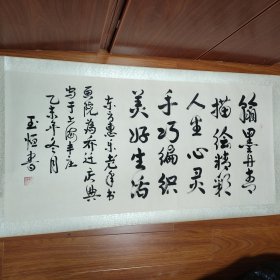 翰墨丹青
描绘精彩
人生心灵
手巧编织
美好生活
东方惠乐老年书
画院为乔迁庆典
书于上海丰庄
乙未年冬月
玉恒书